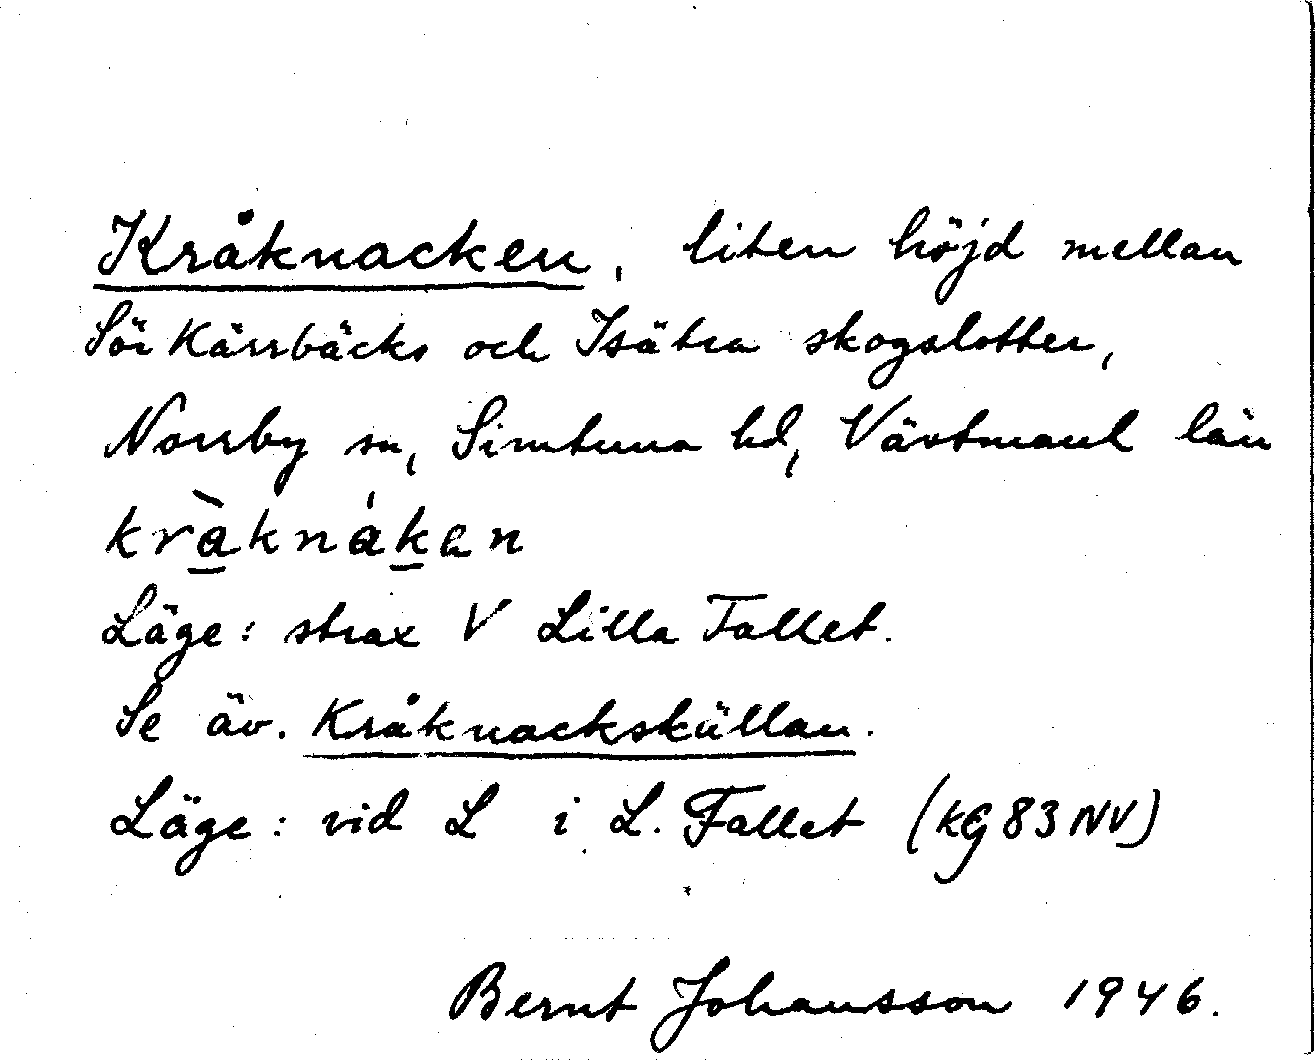 Kråknacken, liten höjd mellan
Sör Kärrbäcks och Isätra skogslotter,
Norrby sn, Simtuna hd, Västmanl län
kràknáken
Läge: strax V Lilla Fallet.
Se äv. Kråknackskällan.
Läge: vid L i L. Fallet (KG 83 NV)
Bernt Johansson 1946.